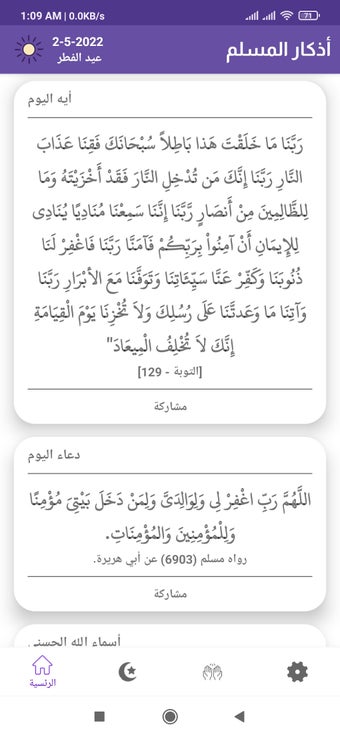 1:09 AM | 0.0KB/s
71
أذكار المسلم
2-5-2022
عيد الفطر
أيه اليوم
رَبَّنَا مَا خَلَقْتَ هَذا بَاطِلاً سُبْحَانَكَ فَقِنَا عَذَابَ
النَّارِ رَبَّنَا إِنَّكَ مَن تُدْخِلِ النَّارَ فَقَدْ أَخْزَيْتَهُ وَمَا
لِلظَّالِمِينَ مِنْ أَنصَارٍ رَّبَّنَا إِنَّنَا سَمِعْنَا مُنَادِيًا يُنَادِى
لِلإِيمَانِ أَنْ آمِنُواْ بِرَبِّكُمْ فَآمَنَّا رَبَّنَا فَاغْفِرْ لَنَا
ذُنُوبَنَا وَكَفِّرْ عَنَّا سَيِّئَاتِنَا وَتَوَفَّنَا مَعَ الأبْرَارِ رَبَّنَا
وَآتِنَا مَا وَعَدتَّنَا عَلَى رُسُلِكَ وَلاَ تُخْزِنَا يَوْمَ الْقِيَامَةِ
إِنَّكَ لاَ تُخْلِفُ الْمِيعَادَ"
[التوبة - 129]
مشاركة
دعاء اليوم
اللَّهُمَّ رَبِّ اغْفِرْ لِى وَلِوَالِدَىَّ وَلِمَنْ دَخَلَ بَيْتِىَ مُؤْمِنًا
وَلِلْمُؤْمِنِينَ وَالمُؤْمِنَاتِ.
رواه مسلم (6903) عن أبي هريرة.
مشاركة
أسماء الله الحسنى
الرئسية